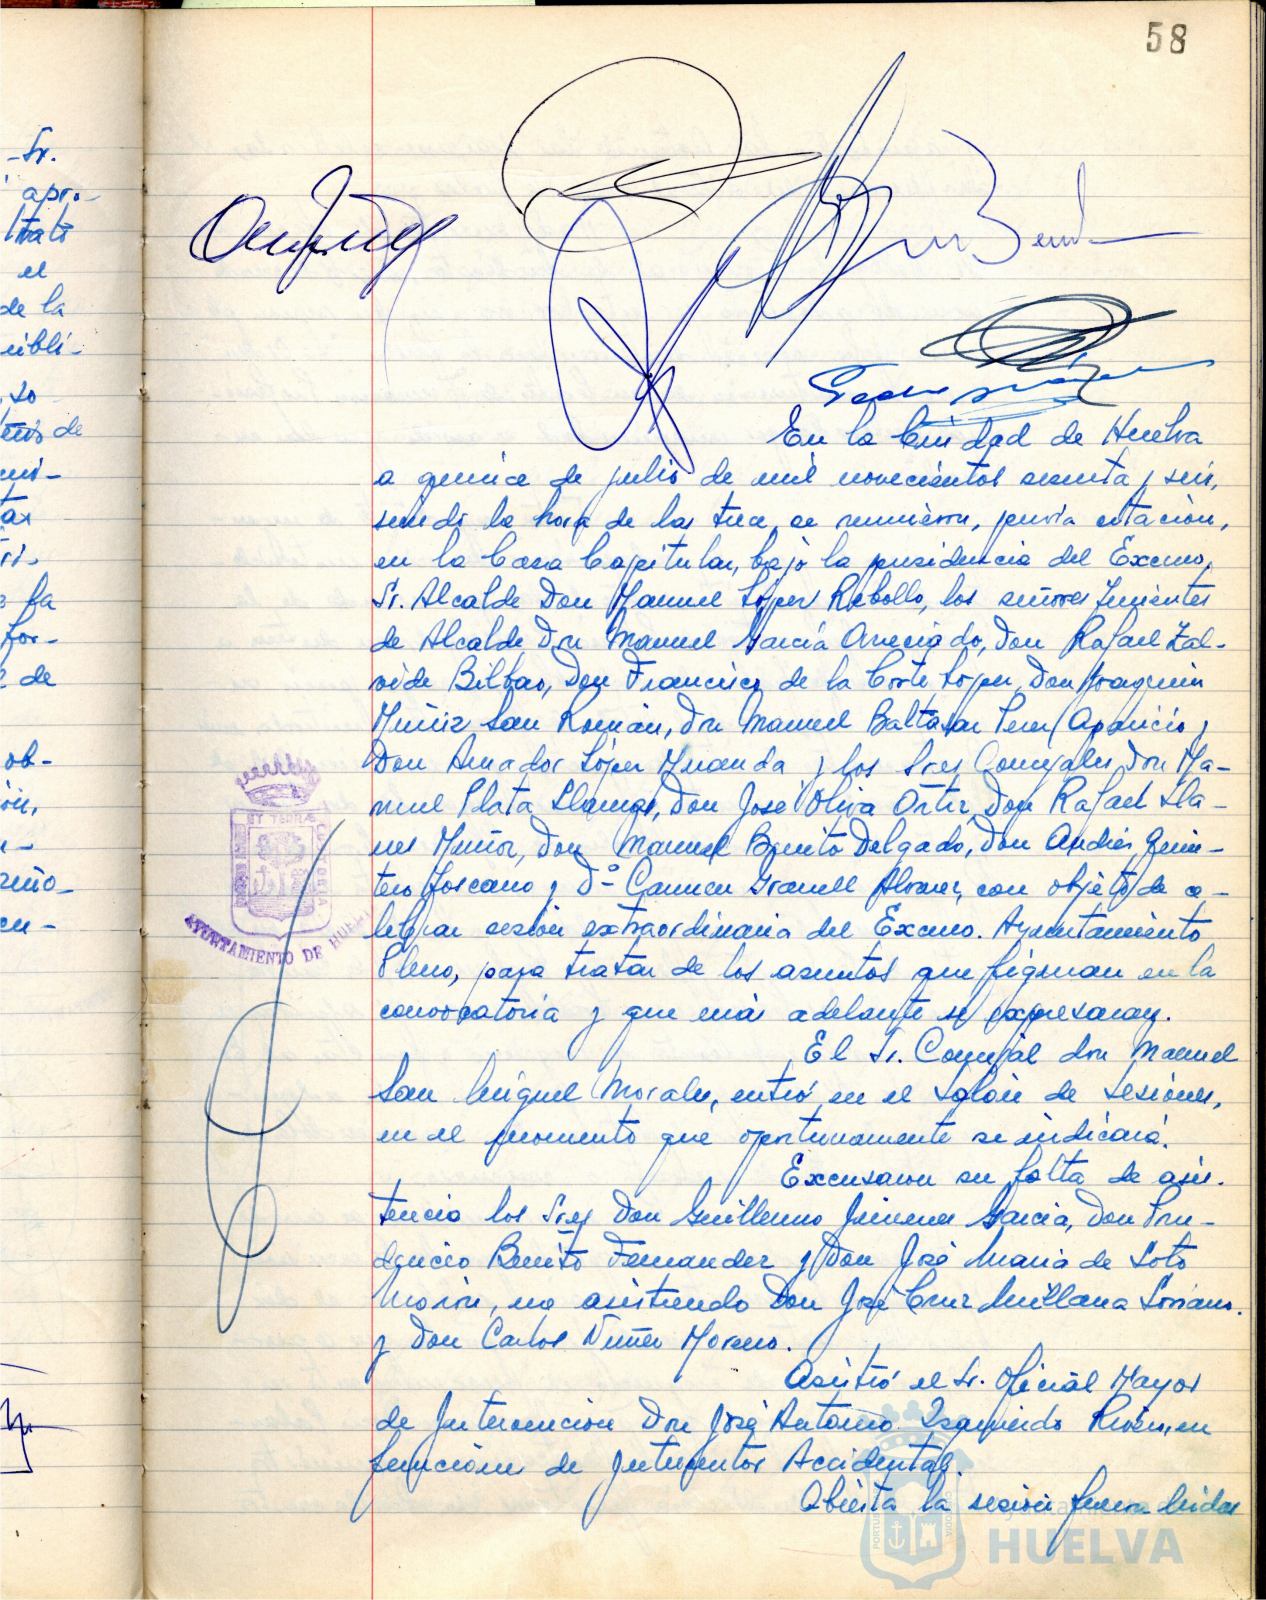 58
Sr.
apro-
el
de la
so
de
for-
de
ob-
En la Ciudad de Huelva
a quince de julio de mil novecientos sesenta y seis,
siendo la hora de las trece, se reunieron, previa citación,
en la Casa Capitular, bajo la presidencia del Excmo.
Sr. Alcalde Don Manuel López Rebollo, los señores Tenientes
de Alcalde Don Manuel García Arreciado, Don Rafael Zal-
vide Bilbao, Don Francisco de la Corte López, Don Joaquín
Muñiz San Román, Don Manuel Baltasar Perez Aparicio y
Don Amador López Miranda y los Sres Concejales, Don Ma-
nuel Plata Llanes, Don José Oliva Ortiz, Don Rafael Lla-
nes Muñoz, Don Manuel Benito Delgado, Don Andrés Quin-
tero Toscano y Dª Carmen Granell Alvarez, con objeto de ce-
lebrar sesión extraordinaria del Excmo. Ayuntamiento
Pleno, para tratar de los asuntos que figuran en la
convocatoria y que más adelante se expresaran.
El Sr. Concejal don Manuel
San Miguel Morales, entró en el Salón de Sesiones,
en el momento que oportunamente se indicará.
Excusaron su falta de asis-
tencia los Sres Don Guillermo Jimenez García, Don Pru-
dencio Benito Fernandez y Don José María de Soto
Morón, no asistiendo Don José Cruz Millana Soriano
y Don Carlos Nuñez Moreno.
Asistió el Sr. Oficial Mayor
de Intervención Don José Antonio Izquierdo en
funciones de Interventor Accidental.
Abierta la sesión fueron leidas
ET TERRAE CUSTODIA
AYUNTAMIENTO DE HUELVA
PORTUS
CUSTODIA
HUELVA